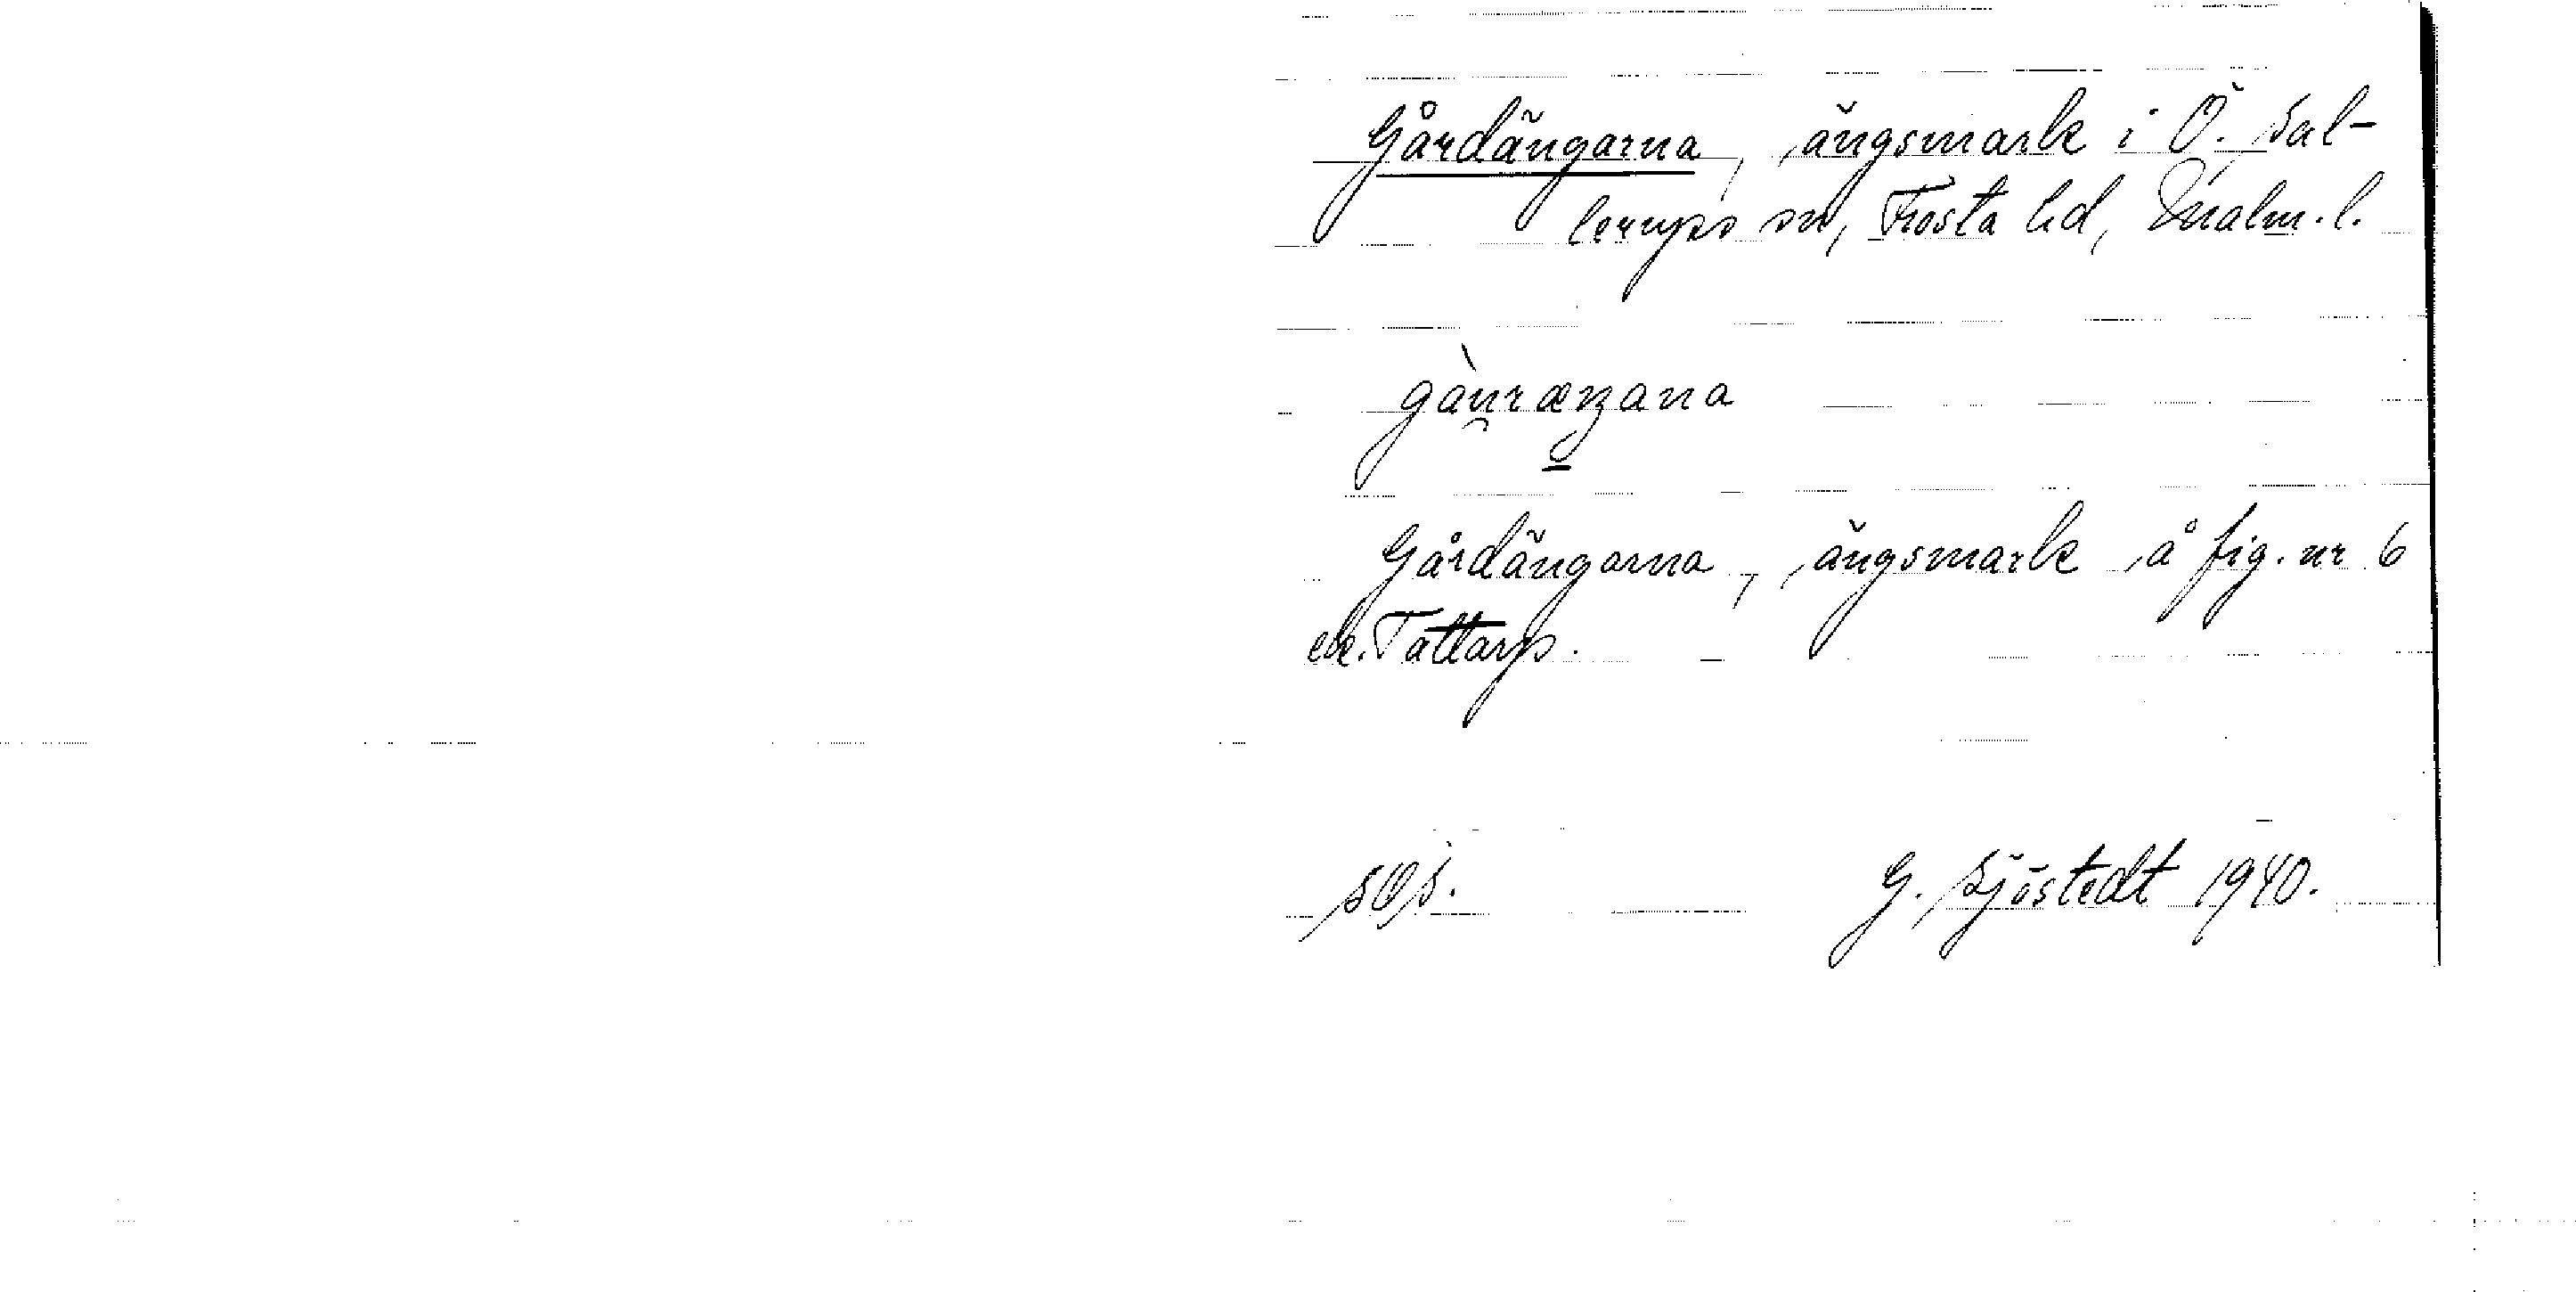 Gårdängarna, ängsmark i Ö. Sal-
lerups sn, Frosta hd, Malm. l.
gàuræŋana
Gårdängarna, ängsmark å fig. nr 6
ek. Tattarp.
SOS.
G. Sjöstedt 1940.